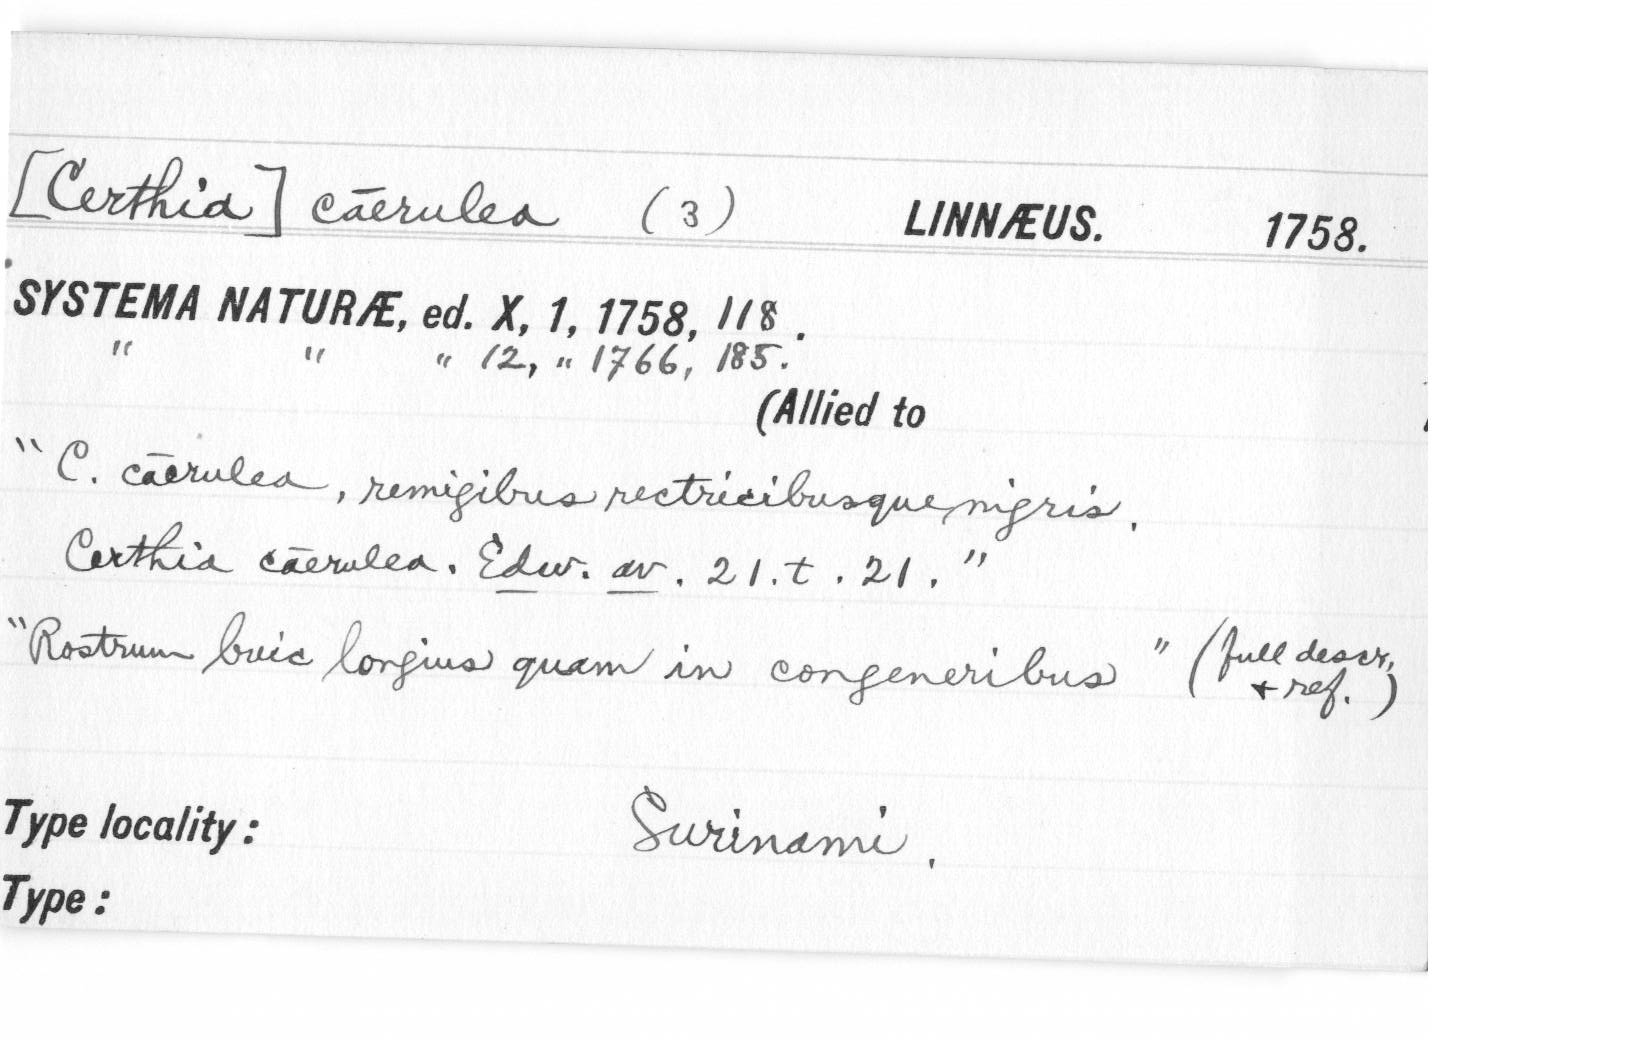 [Certhia] cāerulea (3) LINNÆUS. 1758.
SYSTEMA NATURÆ, ed. X, 1, 1758, 118.
" " " 12, " 1766, 185.
(Allied to
"C. cāerulea, remigibus rectricibusque nigris.
Certhia cāerulea. Edw. av. 21. t. 21."
"Rostrum huic longius quam in congeneribus" (full descr.
+ ref.)
Type locality: Surinami.
Type: